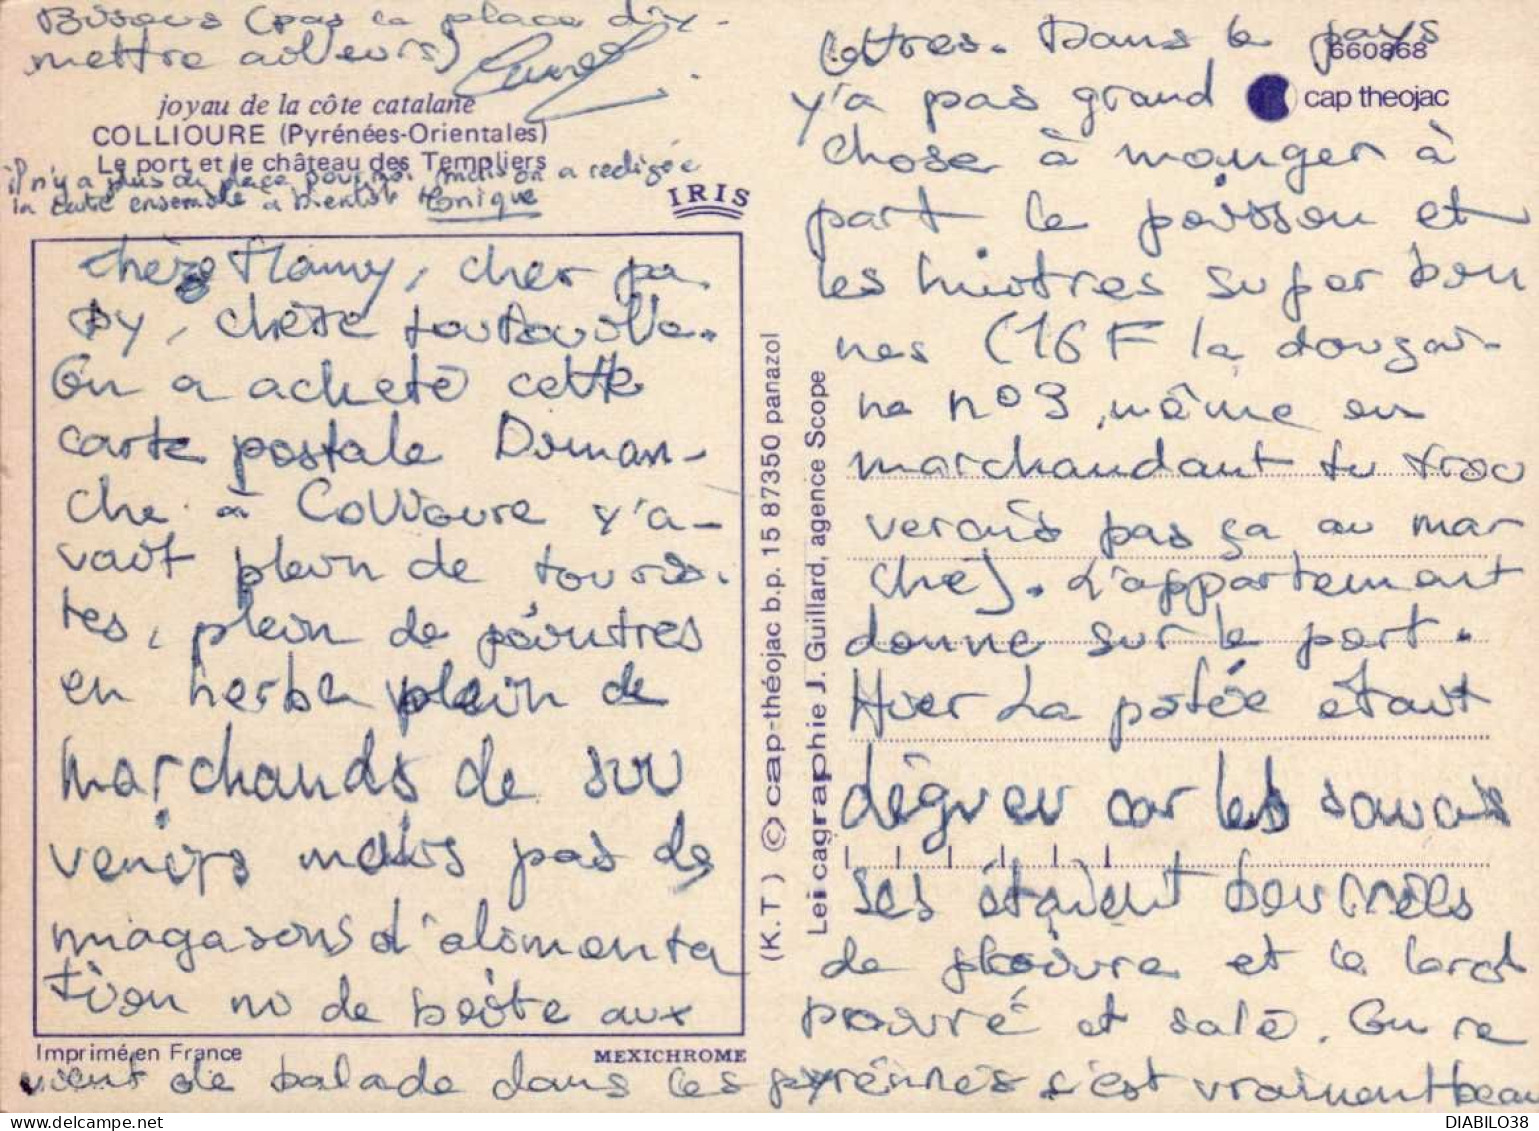 Bisous (pas la place d'y
mettre ailleurs)
joyau de la côte catalane
COLLIOURE (Pyrénées-Orientales)
Le port et le château des Templiers
il n'y a plus de place pour moi mais on a redigé
la carte ensemble a bientôt Monique
IRIS
chère Mamy, cher pa
py, chère toutouille.
On a acheté cette
carte postale Diman-
che à Collioure y'a-
vait plein de touris-
tes, plein de peintres
en herbe plein de
marchands de sou
venirs mais pas de
magasins d'alimenta
tion ni de boîte aux
lettres. Dans le pays
y'a pas grand
chose à manger à
part le poisson et
les huîtres super bon
nes (16 F la douzai-
ne n°3, même en
marchandant tu trou
verais pas ça au mar
ché). L'appartement
donne sur le port.
Hier la potée était
dégueu car les saucis
ses étaient bourrées
de poivre et le lard
poivré et salé. On re
vient de balade dans les pyrénnées c'est vraiment beau
660868
cap theojac
(K.T) © cap-théojac b.p. 15 87350 panazol
Leicagraphie J. Guillard, agence Scope
Imprimé en France
MEXICHROME
DIABILO38